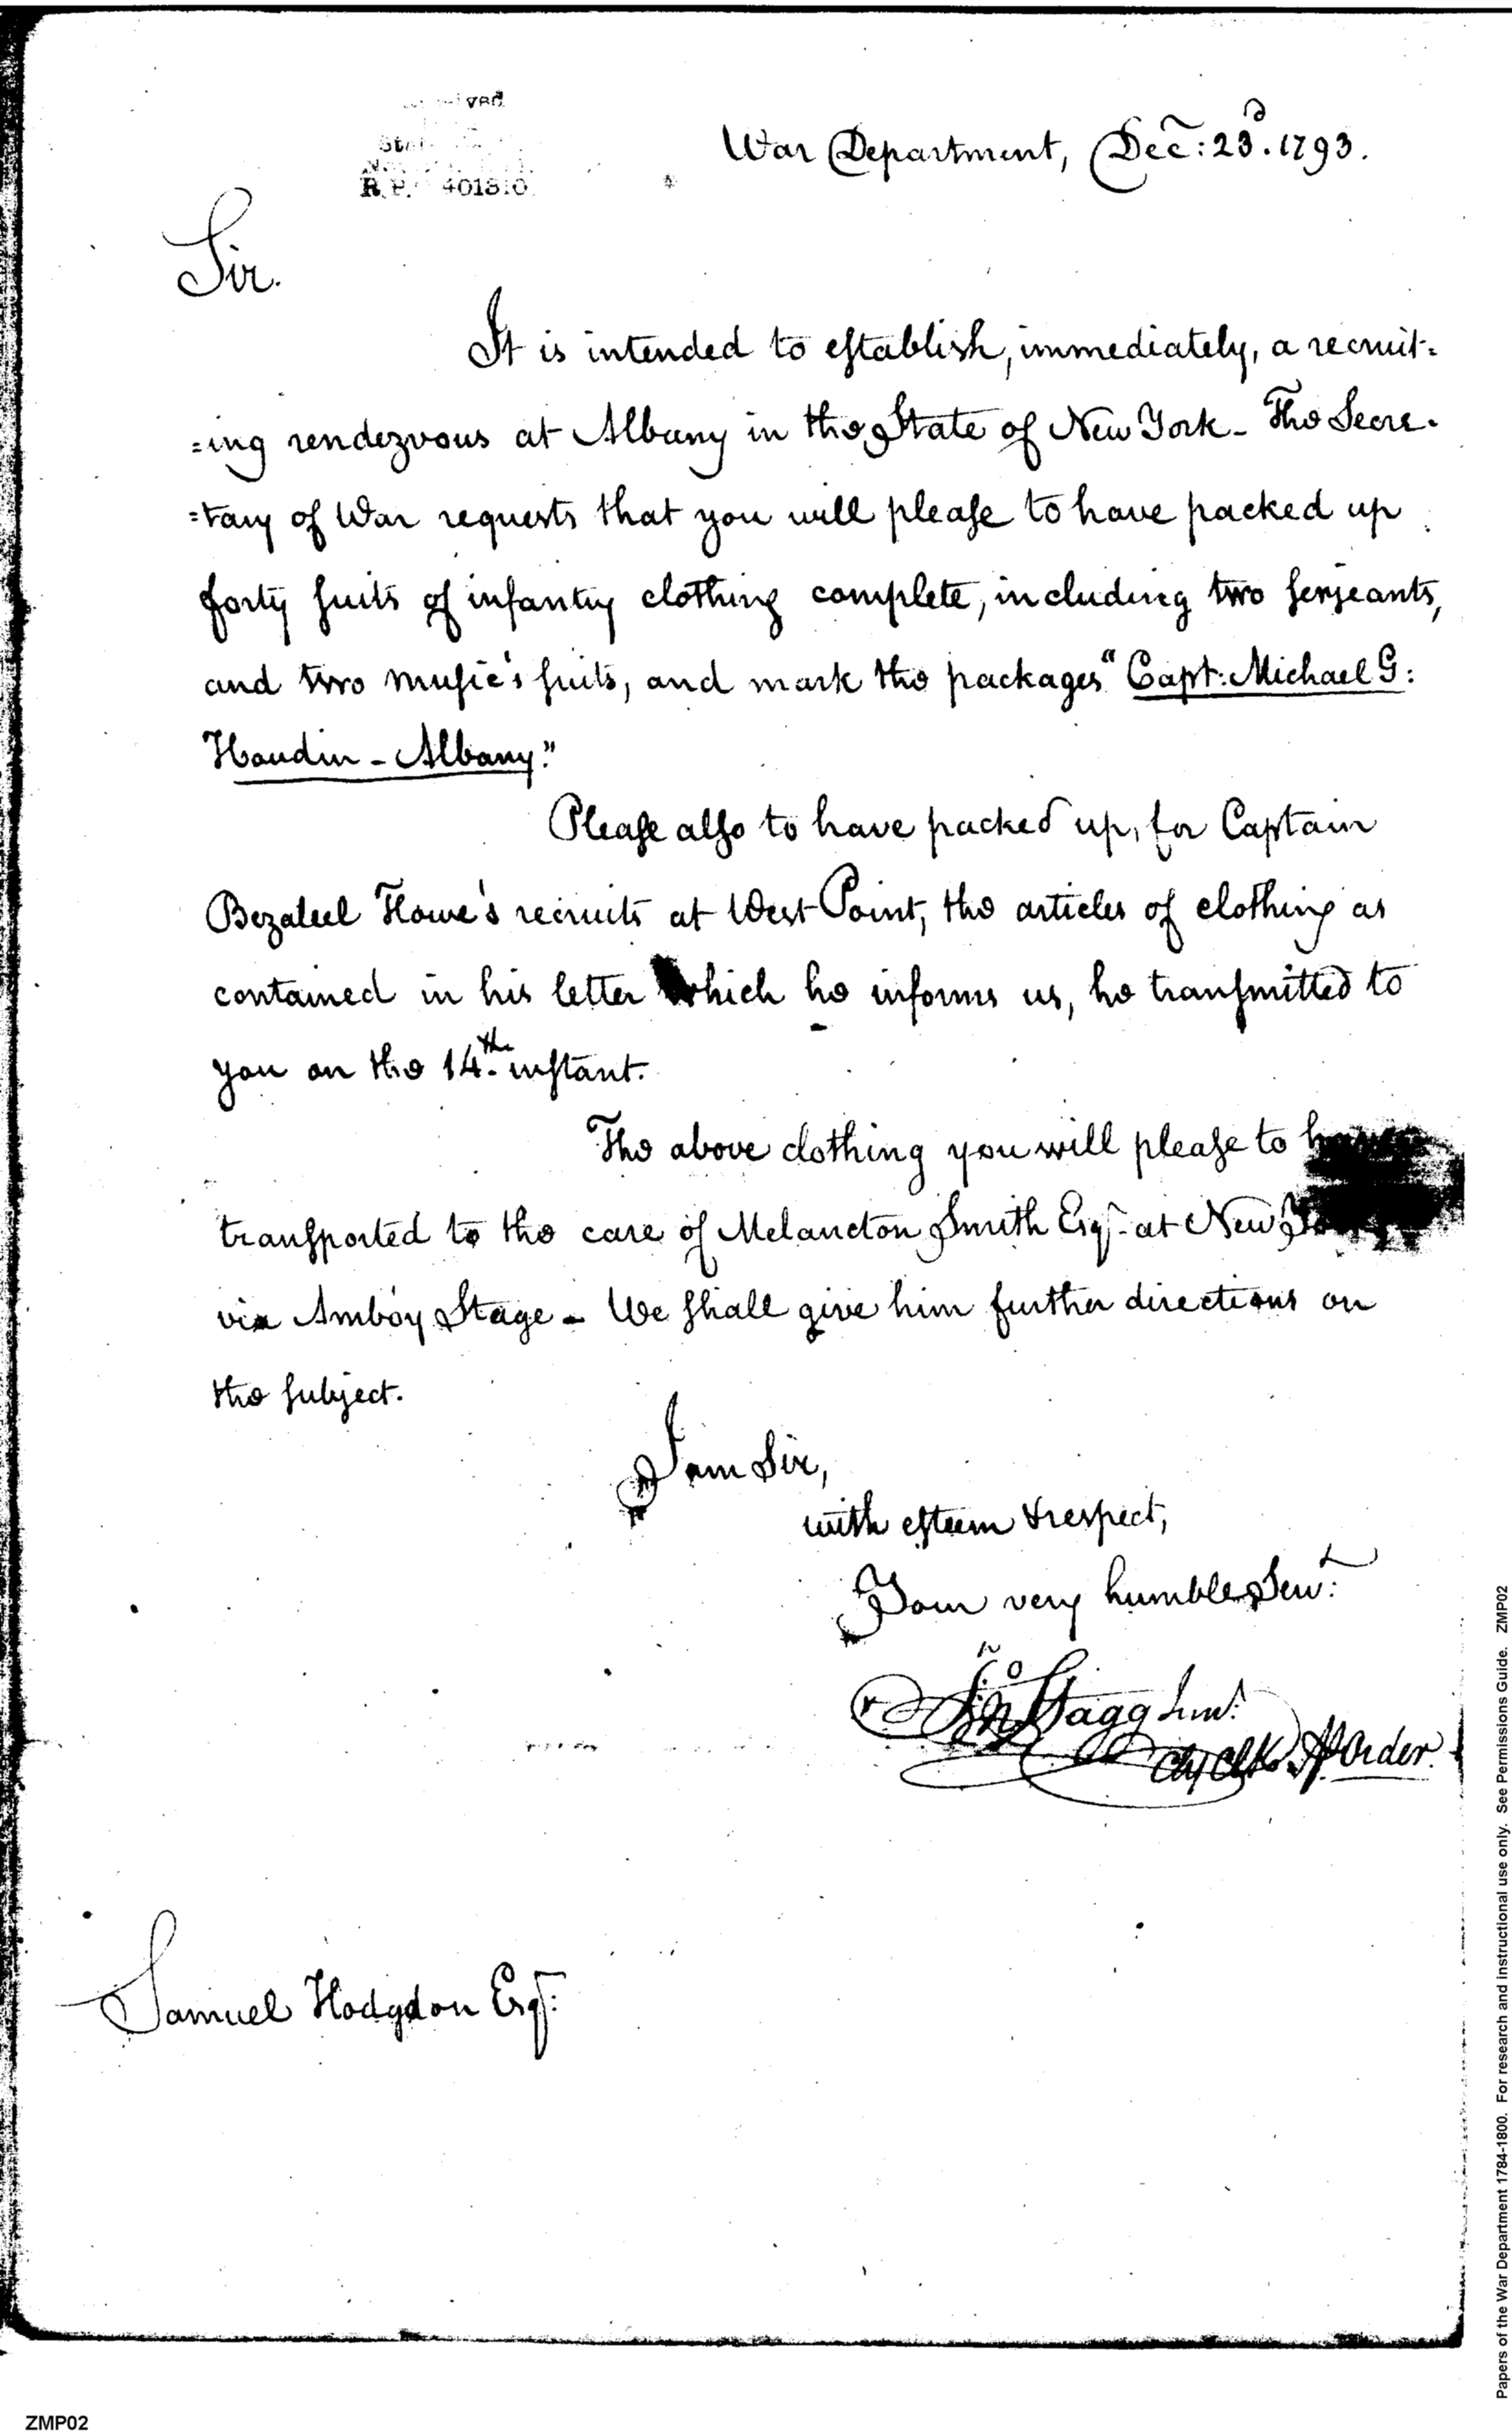 War Department, Decr: 23d. 1793.
Sir.
It is intended to establish, immediately, a recruit=
=ing rendezvous at Albany in the State of New York - The Secre=
=tary of War requests that you will please to have packed up
forty suits of infantry clothing complete, including two serjeants,
and two music's suits, and mark the packages "Capt: Michael G:
Houdin - Albany."
Please also to have packed up, for Captain
Bezaleel Howe's recruits at West Point, the articles of clothing as
contained in his letter which he informs us, he transmitted to
you on the 14th. instant.
The above clothing you will please to have
transported to the care of Melancton Smith Esqr. at New York
via Amboy Stage - We shall give him further directions on
the subject.
I am Sir,
with esteem & respect,
Your very humble Servt:
Jno Stagg Junr.
Chf Clk. Pr Order.
Samuel Hodgdon Esqr:
Papers of the War Department 1784-1800. For research and instructional use only. See Permissions Guide. ZMP02
ZMP02